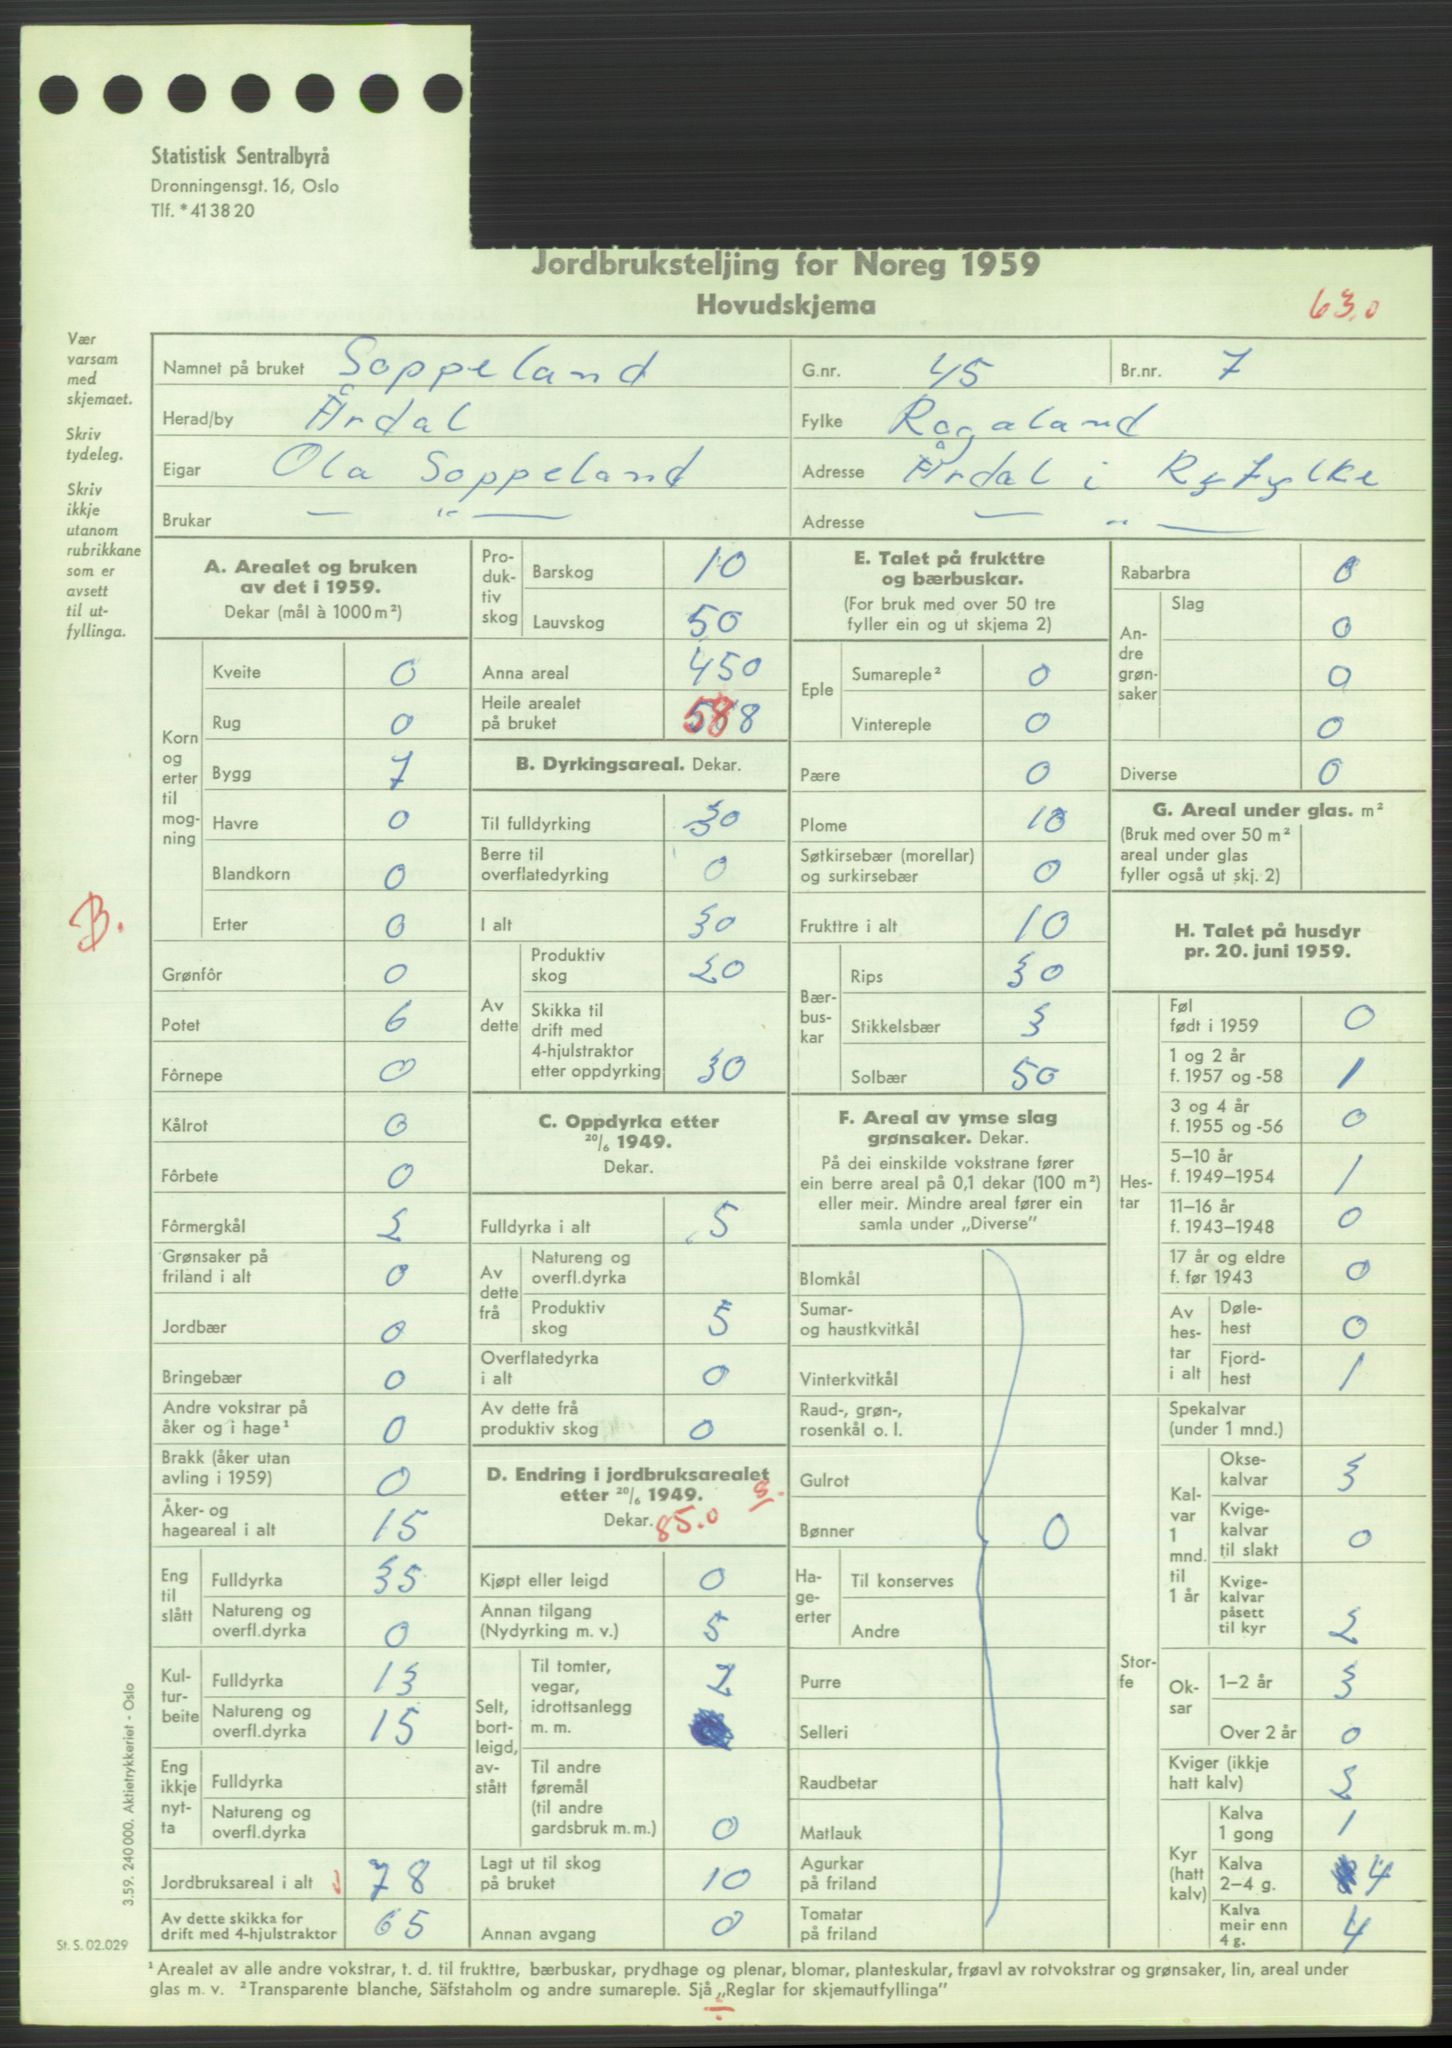 Statistisk Sentralbyrå
Dronningensgt. 16, Oslo
Tlf. *41 38 20
Jordbruksteljing for Noreg 1959
Hovudskjema
63.0
Vær
varsam
med
skjemaet.
Skriv
tydeleg.
Skriv
ikkje
utanom
rubrikkane
som er
avsett
til ut-
fyllinga.
B.
Namnet på bruket Soppeland G.nr. 45 Br.nr. 7
Herad/by Årdal Fylke Rogaland
Eigar Ola Soppeland Adresse Årdal i Ryfylke
Brukar — " — Adresse — " —
A. Arealet og bruken
av det i 1959.
Dekar (mål à 1000 m²)
Korn
og
erter
til
mog-
ning
Kveite 0
Rug 0
Bygg 7
Havre 0
Blandkorn 0
Erter 0
Grønfôr 0
Potet 6
Fôrnepe 0
Kålrot 0
Fôrbete 0
Fôrmergkål 2
Grønsaker på
friland i alt 0
Jordbær 0
Bringebær 0
Andre vokstrar på
åker og i hage¹ 0
Brakk (åker utan
avling i 1959) 0
Åker- og
hageareal i alt 15
Eng
til
slått
Fulldyrka 35
Natureng og
overfl.dyrka 0
Kul-
tur-
beite
Fulldyrka 13
Natureng og
overfl.dyrka 15
Eng
ikkje
nyt-
ta
Fulldyrka
Natureng og
overfl.dyrka
Jordbruksareal i alt 78
Av dette skikka for
drift med 4-hjulstraktor 65
Pro-
duk-
tiv
skog
Barskog 10
Lauvskog 50
Anna areal 450
Heile arealet
på bruket 588
B. Dyrkingsareal. Dekar.
Til fulldyrking 30
Berre til
overflatedyrking 0
I alt 30
Av
dette
Produktiv
skog 20
Skikka til
drift med
4-hjulstraktor
etter oppdyrking 30
C. Oppdyrka etter
20/6 1949.
Dekar.
Fulldyrka i alt 5
Av
dette
frå
Natureng og
overfl.dyrka
Produktiv
skog 5
Overflatedyrka
i alt 0
Av dette frå
produktiv skog 0
D. Endring i jordbruksarealet
etter 20/6 1949.
Dekar. 85.0
Kjøpt eller leigd 0
Annan tilgang
(Nydyrking m. v.) 5
Selt,
bort-
leigd,
av-
stått
Til tomter,
vegar,
idrottsanlegg
m. m. 2
Til andre
føremål
(til andre
gardsbruk m. m.) 0
Lagt ut til skog
på bruket 10
Annan avgang 0
E. Talet på frukttre
og bærbuskar.
(For bruk med over 50 tre
fyller ein og ut skjema 2)
Eple
Sumareple² 0
Vintereple 0
Pære 0
Plome 10
Søtkirsebær (morellar)
og surkirsebær 0
Frukttre i alt 10
Bær-
bus-
kar
Rips 30
Stikkelsbær 3
Solbær 50
F. Areal av ymse slag
grønsaker. Dekar.
På dei einskilde vokstrane fører
ein berre areal på 0,1 dekar (100 m²)
eller meir. Mindre areal fører ein
samla under „Diverse”
Blomkål
Sumar-
og haustkvitkål
Vinterkvitkål
Raud-, grøn-,
rosenkål o. l.
Gulrot
Bønner 0
Ha-
ge-
erter
Til konserves
Andre
Purre
Selleri
Raudbetar
Matlauk
Agurkar
på friland
Tomatar
på friland
Rabarbra 0
An-
dre
grøn-
saker
Slag
0
0
0
Diverse 0
G. Areal under glas. m²
(Bruk med over 50 m²
areal under glas
fyller også ut skj. 2)
H. Talet på husdyr
pr. 20. juni 1959.
Hes-
tar
Føl
født i 1959 0
1 og 2 år
f. 1957 og -58 1
3 og 4 år
f. 1955 og -56 0
5–10 år
f. 1949–1954 1
11–16 år
f. 1943–1948 0
17 år og eldre
f. før 1943 0
Av
hes-
tar
i alt
Døle-
hest 0
Fjord-
hest 1
Stor-
fe
Spekalvar
(under 1 mnd.)
Kal-
var
1
mnd.
til
1 år
Okse-
kalvar 3
Kvige-
kalvar
til slakt 0
Kvige-
kalvar
påsett
til kyr 2
Ok-
sar
1–2 år 3
Over 2 år 0
Kviger (ikkje
hatt kalv) 2
Kyr
(hatt
kalv)
Kalva
1 gong 1
Kalva
2–4 g. 4
Kalva
meir enn
4 g. 4
3.59. 240 000. Aktietrykkeriet - Oslo
St. S. 02.029
¹ Arealet av alle andre vokstrar, t. d. til frukttre, bærbuskar, prydhage og plenar, blomar, planteskular, frøavl av rotvokstrar og grønsaker, lin, areal under
glas m. v. ² Transparente blanche, Säfstaholm og andre sumareple. Sjå „Reglar for skjemautfyllinga”